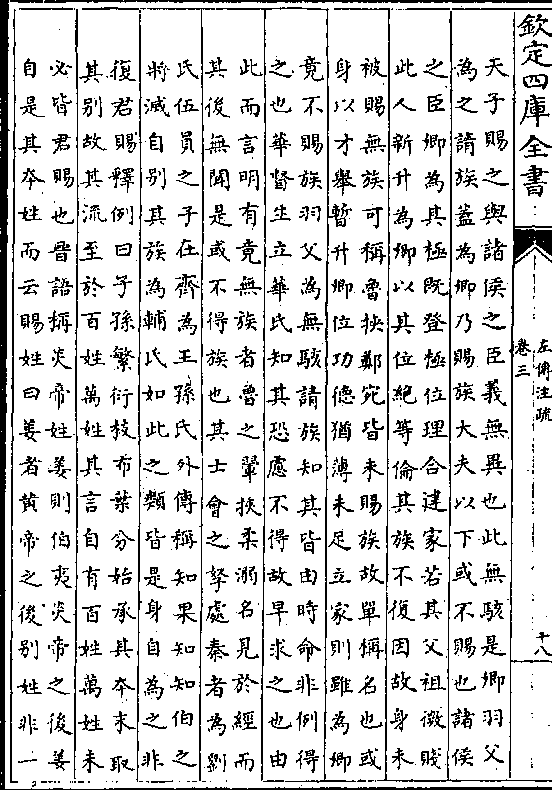 欽定四庫全書
左傳注疏
卷三
十八
天子賜之與諸侯之臣義無異也此無駭是卿羽父
為之請族蓋為卿乃賜族大夫以下或不賜也諸侯
之臣卿為其極既登極位理合建家若其父祖微賤
此人新升為卿以其位絕等倫其族不復因故身未
被賜無族可稱魯挾鄭宛皆未賜族故單稱名也或
身以才舉暫升卿位功德猶薄未足立家則雖為卿
竟不賜族羽父為無駭請族知其皆由時命非例得
之也華督生立華氏知其恐慮不得故早求之也由
此而言明有竟無族者魯之翬挾柔溺名見於經而
其後無聞是或不得族也其士會之孥處秦者為劉
氏伍員之子在齊為王孫氏外傳稱知果知知伯之
將滅自別其族為輔氏如此之類皆是身自為之非
復君賜釋例曰子孫繁衍枝布葉分始承其夲末取
其別故其流至於百姓萬姓其言自有百姓萬姓未
必皆君賜也晉語稱炎帝姓姜則伯夷炎帝之後姜
自是其夲姓而云賜姓曰姜者黃帝之後別姓非一